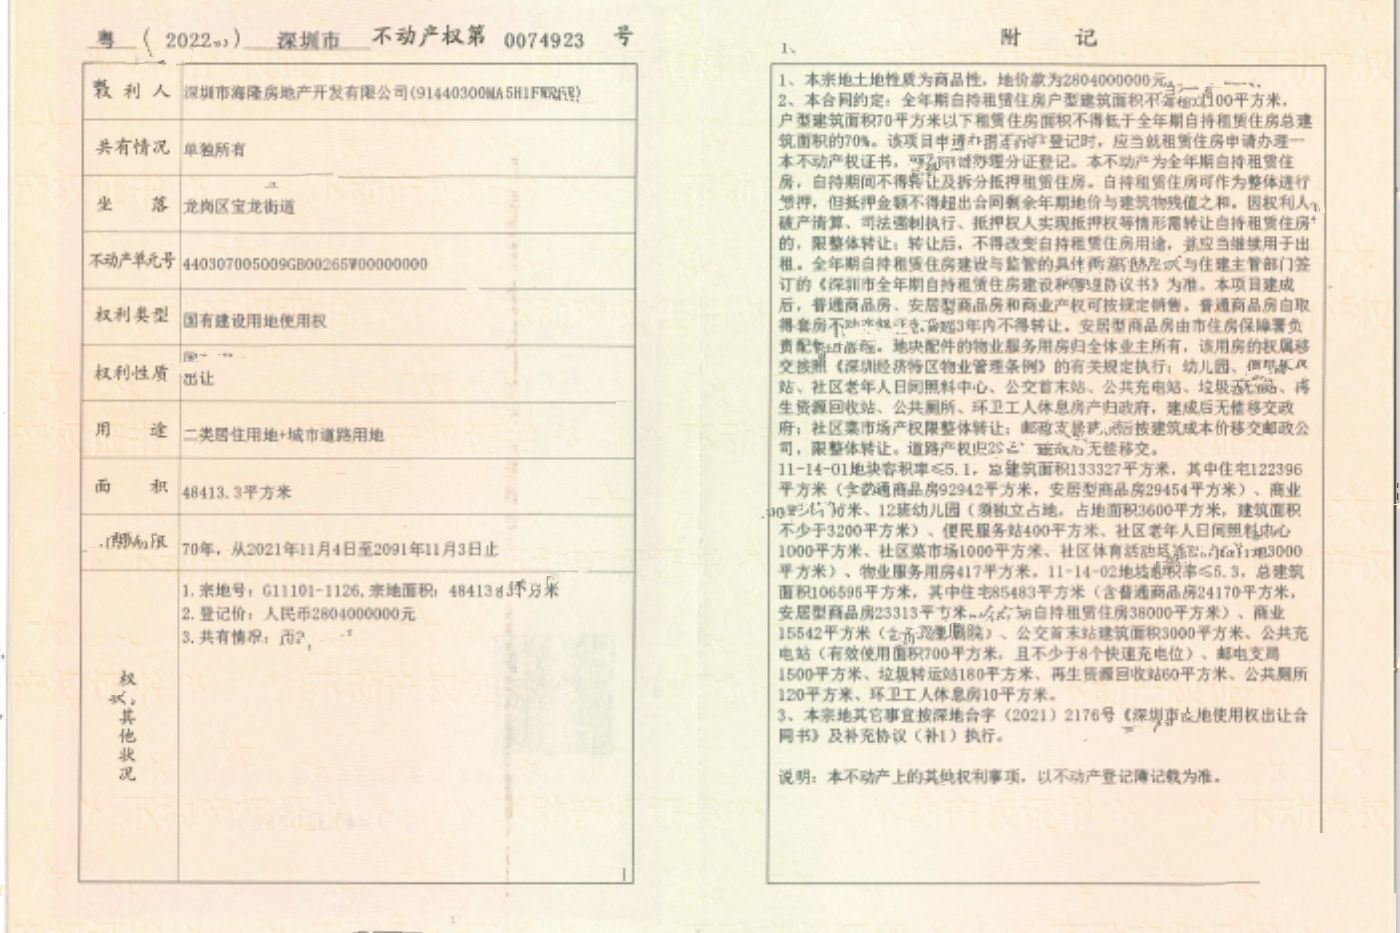 粤（2022）深圳市 不动产权第 0074923 号
权利人 深圳市海隆房地产开发有限公司
共有情况 单独所有
坐落 龙岗区宝龙街道
不动产单元号 440307005009GB00265W00000000
权利类型 国有建设用地使用权
权利性质 出让
用途 二类居住用地+城市道路用地
面积 48413.3平方米
70年，从2021年11月4日至2091年11月3日止
1.宗地号：G11101-1126,宗地面积：48413
2.登记价：人民币2804000000元
3.共有情况：
其他状况
附 记
1、
1、本宗地土地性质为商品性，地价款为2804000000元
2、本合同约定：全年期自持租赁住房户型建筑面积不 100平方米，
户型建筑面积70平方米以下租赁住房面积不得低于全年期自持租赁住房总建
筑面积的70%。该项目申请办 登记时，应当就租赁住房申请办理一
本不动产权证书， 办理分证登记。本不动产为全年期自持租赁住
房，自持期间不得转让及拆分抵押租赁住房。自持租赁住房可作为整体进行
押，但抵押金额不得超出合同剩余年期地价与建筑物残值之和。因权利人
破产清算、司法强制执行、抵押权人实现抵押权等情形需转让自持租赁住房
的，限整体转让；转让后，不得改变自持租赁住房用途，并应当继续用于出
租。全年期自持租赁住房建设与监管的具体 与住建主管部门签
订的《深圳市全年期自持租赁住房建设和管理协议书》为准。本项目建成
后，普通商品房、安居型商品房和商业产权可按规定销售。普通商品房自取
得 房不动产 3年内不得转让。安居型商品房由市住房保障署负
责配售 管理。地块配件的物业服务用房归全体业主所有，该用房的权属移
交按照《深圳经济特区物业管理条例》的有关规定执行；幼儿园、
站、社区老年人日间照料中心、公交首末站、公共充电站、垃圾 站、再
生资源回收站、公共厕所、环卫工人休息房产归政府，建成后无偿移交政
府；社区菜市场产权限整体转让；邮政支局 后按建筑成本价移交邮政公
司，限整体转让。道路产权归 后无偿移交。
11-14-01地块容积率≤5.1，总建筑面积133327平方米，其中住宅122396
平方米（含普通商品房92942平方米，安居型商品房29454平方米）、商业
米、12班幼儿园（须独立占地，占地面积3600平方米，建筑面积
不少于3200平方米）、便民服务站400平方米、社区老年人日间照料中心
1000平方米、社区菜市场1000平方米、社区体育活动场 3000
平方米）、物业服务用房417平方米。11-14-02地块容积率≤5.3，总建筑
面积106595平方米，其中住宅85483平方米（含普通商品房24170平方米，
安居型商品房23313平方米， 自持租赁住房38000平方米）、商业
15542平方米（含 影剧院）、公交首末站建筑面积3000平方米、公共充
电站（有效使用面积700平方米，且不少于8个快速充电位）、邮电支局
1500平方米、垃圾转运站180平方米、再生资源回收站60平方米、公共厕所
120平方米、环卫工人休息房10平方米。
3、本宗地其它事宜按深地合字（2021）2176号《深圳市土地使用权出让合
同书》及补充协议（补1）执行。
说明：本不动产上的其他权利事项，以不动产登记簿记载为准。